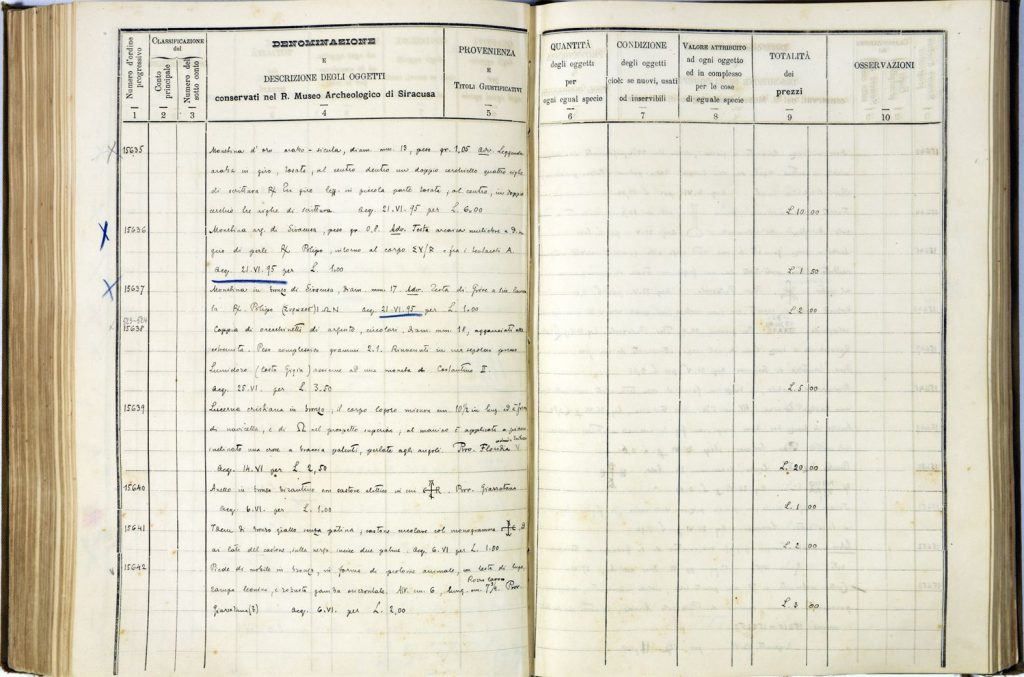 Numero d'ordine progressivo
1
CLASSIFICAZIONE del
Conto principale
2
Numero del sotto conto
3
DENOMINAZIONE
E
DESCRIZIONE DEGLI OGGETTI
conservati nel R. Museo Archeologico di Siracusa
4
PROVENIENZA
E
TITOLI GIUSTIFICATIVI
5
QUANTITÀ
degli oggetti
per
ogni egual specie
6
CONDIZIONE
degli oggetti
cioè: se nuovi, usati
od inservibili
7
VALORE ATTRIBUITO
ad ogni oggetto
ed in complesso
per le cose
di eguale specie
8
TOTALITÀ
dei
prezzi
9
OSSERVAZIONI
10
15635
Monetina d'oro arabo-sicula, diam. mm. 13, peso gr. 1,05 Adv. Leggenda
araba in giro, tosata, al centro dentro un doppio cerchiello quattro righe
di scrittura R/ In giro legg. in piccola parte tosata, al centro, in doppio
cerchio tre righe di scrittura Acq. 21.VI.95 per L. 6.00
L. 10 00
15636
Monetina arg. di Siracusa, peso gr. 0.8. Adv. Testa arcaica muliebre a D. in
giro di perle R/ Polipo, intorno al corpo ΣVR e fra i tentacoli A.
Acq. 21.VI.95 per L. 1.00
L. 1 50
15637
Monetina in bronzo di Siracusa, diam. mm. 17 Adv. Testa di
R/ Polipo ΙΩΝ Acq. 21.VI.95 per L. 1.00
L. 2 00
523-524
15638
Coppia di orecchietti di argento, circolari, diam. mm. 18, agganciati alle
estremità. Peso complessivo grammi 2.1. Rinvenuti in un sepolcro presso
Lumidoro (Costa Gigia) assieme ad una moneta di Costantino II.
Acq. 25.VI. per L. 3.50
L. 5 00
15639
Lucerna cristiana in bronzo, il corpo logoro misura cm 10½ in lung. è a forma
di navicella, e di Ω nel prospetto superiore, al manico è applicata a piano
inclinato una croce a braccia patenti, perlate agli angoli. Prov. Floridia
Acq. 14.VI per L. 2,50
L. 20 00
15640
Anello in bronzo bizantino con castone elittico in cui R. Prov. Giarratana
Acq. 6.VI. per L. 1.00
L. 1 00
15641
di bronzo giallo senza patina, castone circolare col monogramma
ai lati del castone, sulla verga, incise due palme. Acq. 6.VI per L. 1.50
L. 2 00
15642
Piede di mobile in bronzo, in forma di protome animale, con testa di lupo,
zampa leonina, e robusta gamba orizzontale. Alt. cm. 6, lung. cm. 7¾. Prov.
Giarratana(?) Acq. 6.VI. per L. 2,00
L. 3 00